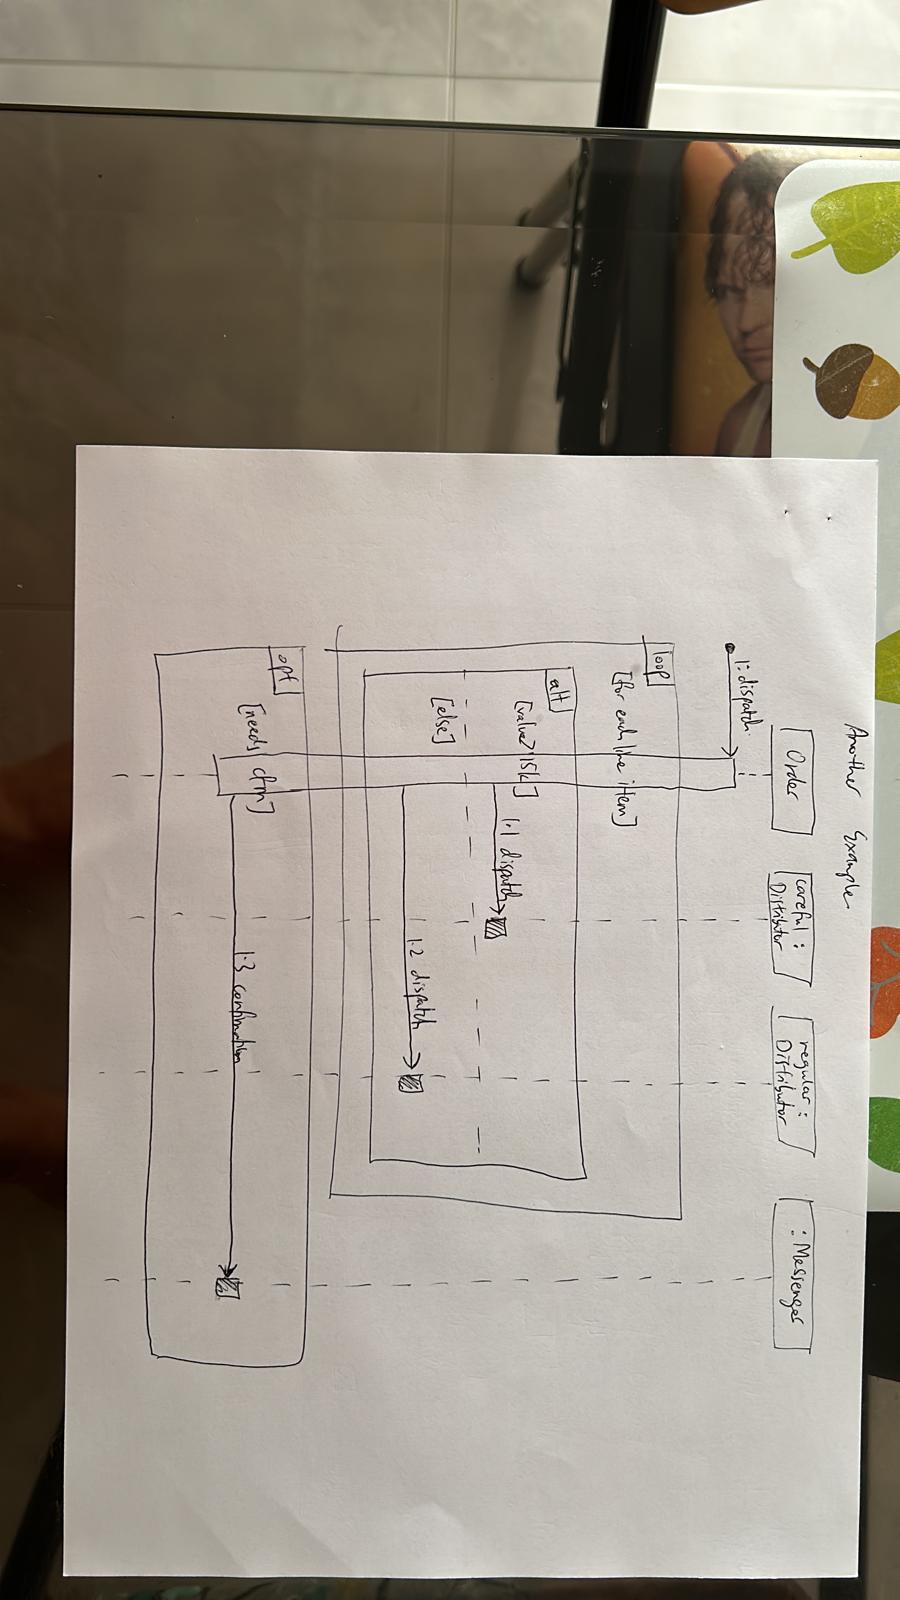 Another Example
Order
careful :
Distributor
regular :
Distributor
: Messenger
1: dispatch
loop
[for each line item]
alt
[value>15k]
1.1 dispatch
[else]
1.2 dispatch
opt
[needs cfm]
1.3 confirmation